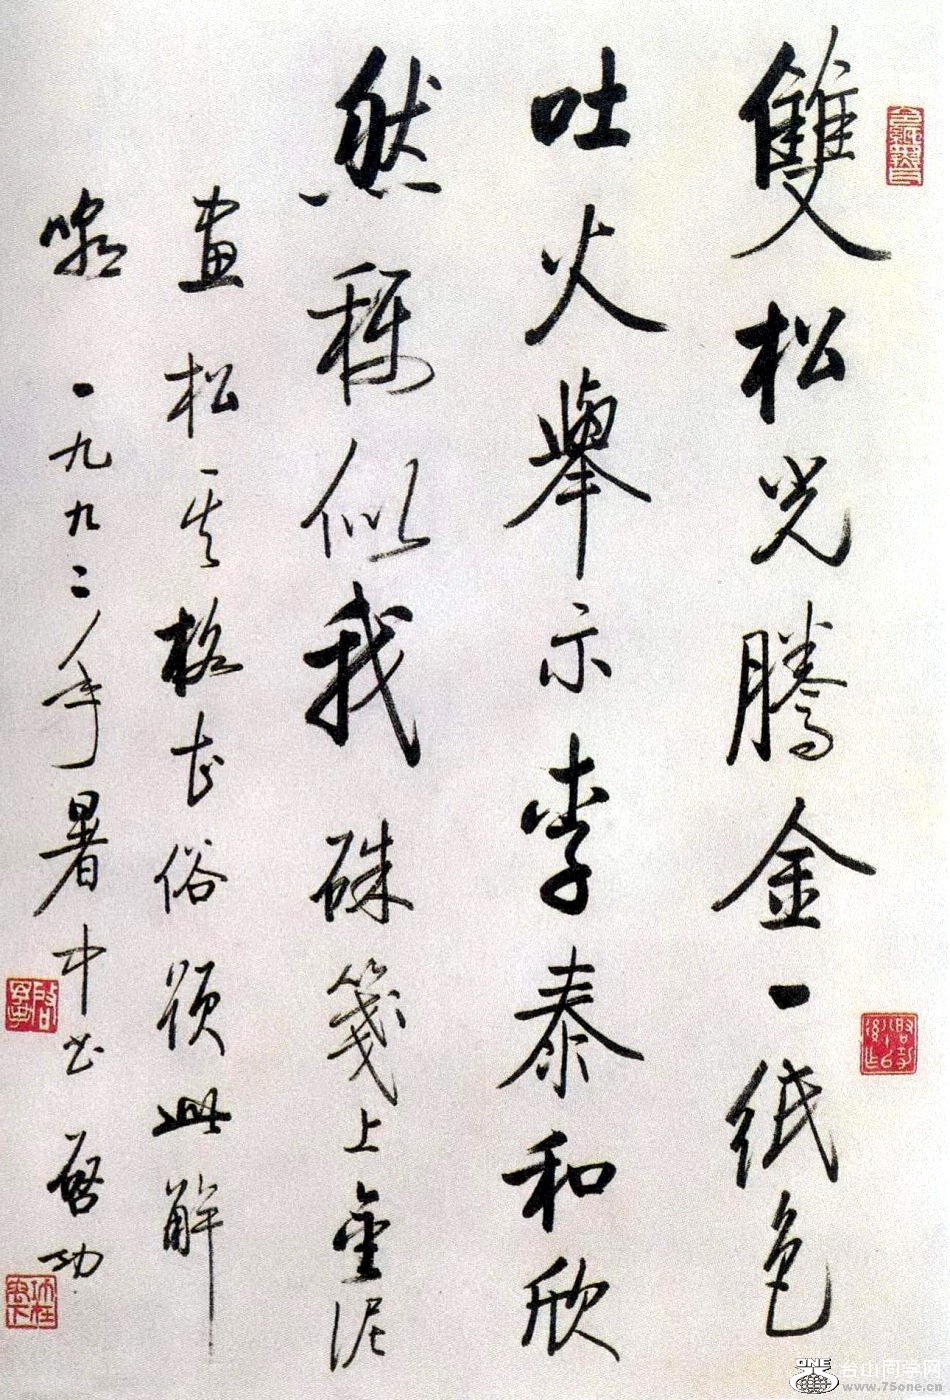 雙松光騰金一紙色
吐火舉示李泰和欣
然稱似我硃箋上金泥
畫松其格甚俗預此解
嘲 一九九二年暑中書 啓功
ONE
台山同学网
www.75one.cn